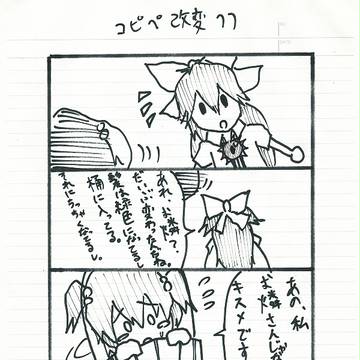 コピペ改変 77
あれ、お燐?
だいぶ変わったねぇ。
髪は緑色になってるし
桶に入ってる。
それにちっちゃくなってるし。
あの、私
お燐さんじゃ
キスメです